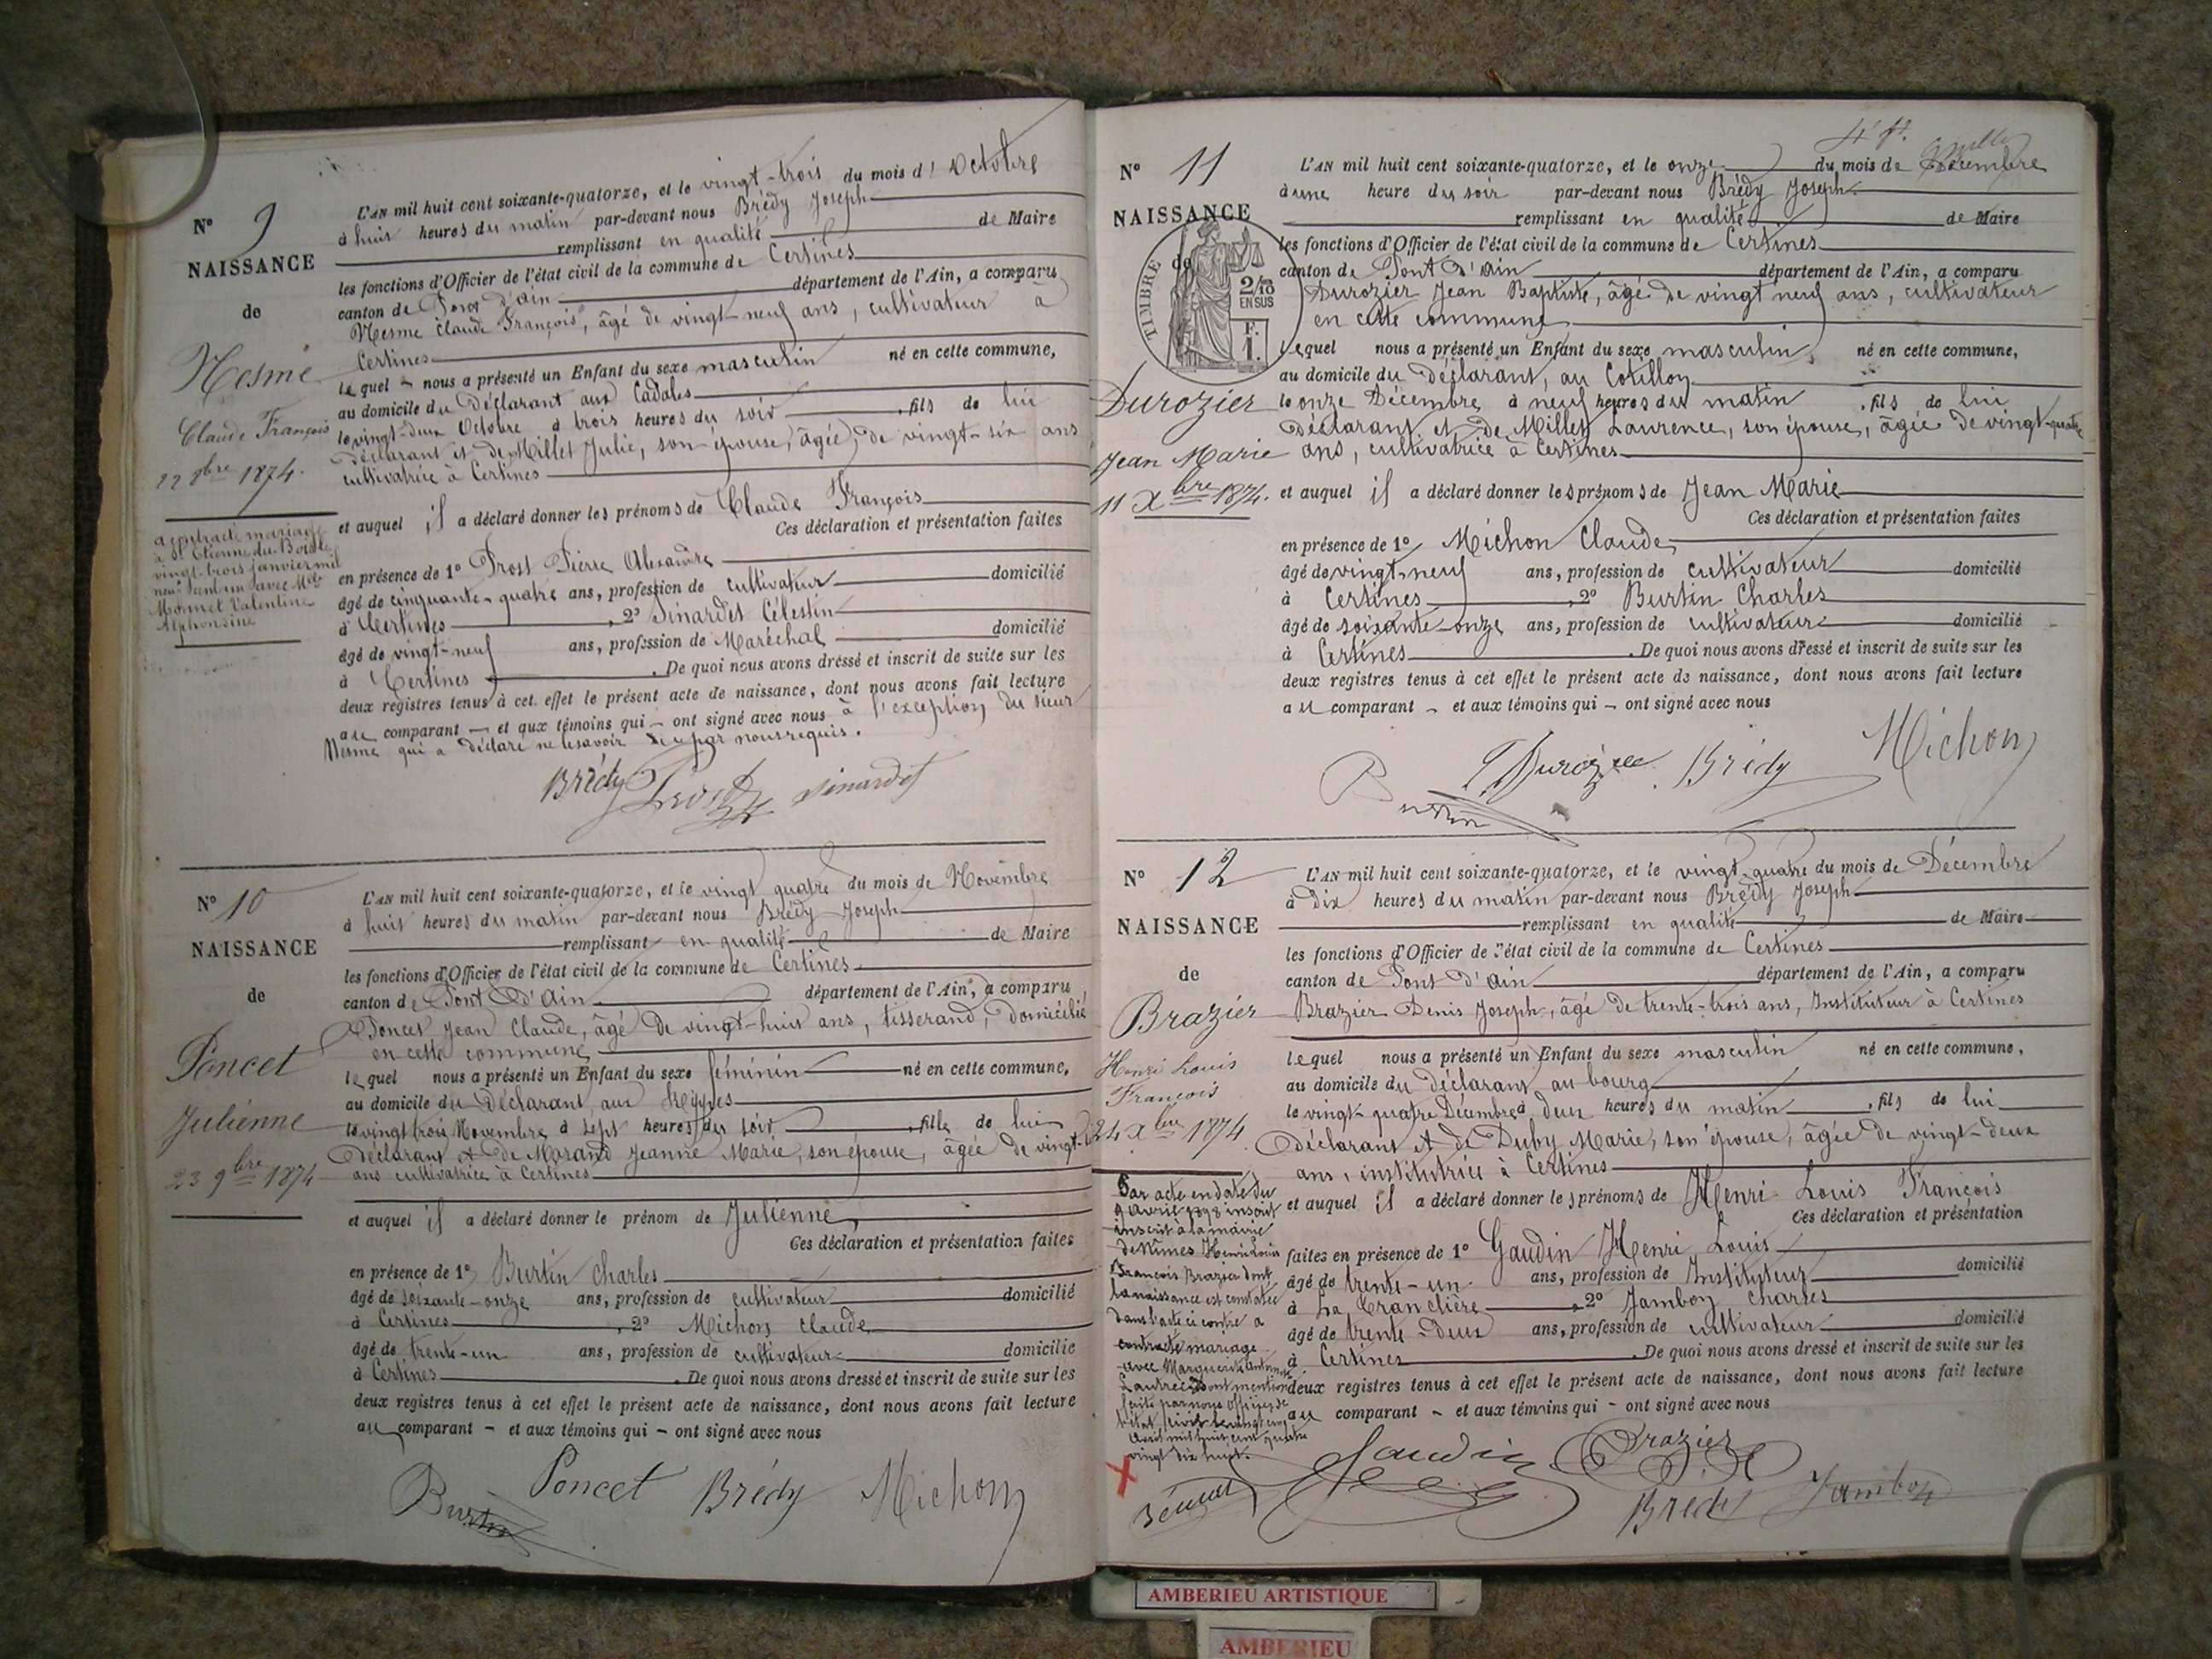 N° 9
NAISSANCE
de
Mesme
Claude François
22 8bre 1874.
a contracté mariage
à St Etienne du Bois le
vingt-trois janvier mil
neuf cent un avec Mlle
Monnet Valentine
Alphonsine
L'AN mil huit cent soixante-quatorze, et le vingt-trois du mois d'Octobre
à huit heures du matin par-devant nous Brédy Joseph
remplissant en qualité de Maire
les fonctions d'Officier de l'état civil de la commune de Certines
canton de Pont d'Ain département de l'Ain, a comparu
Mesme Claude François, âgé de vingt-neuf ans, cultivateur à
Certines
lequel nous a présenté un Enfant du sexe masculin né en cette commune,
au domicile du Déclarant aux Cadales
le vingt-deux Octobre à trois heures du soir, fils de lui
déclarant et de Millet Julie, son épouse, âgée de vingt-six ans
cultivatrice à Certines
et auquel il a déclaré donner les prénoms de Claude François
Ces déclaration et présentation faites
en présence de 1° Prost Pierre Alexandre
âgé de cinquante-quatre ans, profession de cultivateur domicilié
à Certines, 2° Sinardet Célestin
âgé de vingt-neuf ans, profession de Maréchal domicilié
à Certines. De quoi nous avons dressé et inscrit de suite sur les
deux registres tenus à cet effet le présent acte de naissance, dont nous avons fait lecture
au comparant - et aux témoins qui - ont signé avec nous à l'exception du sieur
Mesme qui a déclaré ne le savoir de ce par nous requis.
Brédy Prost Sinardet
N° 10
NAISSANCE
de
Poncet
Julienne
23 9bre 1874
L'AN mil huit cent soixante-quatorze, et le vingt quatre du mois de Novembre
à huit heures du matin par-devant nous Brédy Joseph
remplissant en qualité de Maire
les fonctions d'Officier de l'état civil de la commune de Certines
canton de Pont d'Ain département de l'Ain, a comparu
Poncet Jean Claude, âgé de vingt-huit ans, tisserand, domicilié
en cette commune
lequel nous a présenté un Enfant du sexe féminin né en cette commune,
au domicile du Déclarant, aux
le vingt trois Novembre à sept heures du soir, fille de lui
Déclarant et de Morand Jeanne Marie, son épouse, âgée de vingt-
ans cultivatrice à Certines
et auquel il a déclaré donner le prénom de Julienne,
Ces déclaration et présentation faites
en présence de 1° Burtin Charles
âgé de soixante-onze ans, profession de cultivateur domicilié
à Certines, 2° Michon Claude
âgé de trente-un ans, profession de cultivateur domicilié
à Certines. De quoi nous avons dressé et inscrit de suite sur les
deux registres tenus à cet effet le présent acte de naissance, dont nous avons fait lecture
au comparant - et aux témoins qui - ont signé avec nous
Burtin Poncet Brédy Michon
N° 11
NAISSANCE
de
TIMBRE
2/10
EN SUS
F.
1.
Durozier
Jean Marie
11 Xbre 1874.
L'AN mil huit cent soixante-quatorze, et le onze du mois de Décembre
à une heure du soir par-devant nous Brédy Joseph
remplissant en qualité de Maire
les fonctions d'Officier de l'état civil de la commune de Certines
canton de Pont d'Ain département de l'Ain, a comparu
Durozier Jean Baptiste, âgé de vingt neuf ans, cultivateur
en cette commune
lequel nous a présenté un Enfant du sexe masculin, né en cette commune,
au domicile du Déclarant, au Cotillon
le onze Décembre à neuf heures du matin, fils de lui
Déclarant et de Millet Laurence, son épouse, âgée de vingt-quatre
ans, cultivatrice à Certines
et auquel il a déclaré donner les prénoms de Jean Marie
Ces déclaration et présentation faites
en présence de 1° Michon Claude
âgé de vingt-neuf ans, profession de cultivateur domicilié
à Certines, 2° Burtin Charles
âgé de soixante-onze ans, profession de cultivateur domicilié
à Certines. De quoi nous avons dressé et inscrit de suite sur les
deux registres tenus à cet effet le présent acte de naissance, dont nous avons fait lecture
au comparant - et aux témoins qui - ont signé avec nous
Burtin Durozier Brédy Michon
N° 12
NAISSANCE
de
Brazier
Henri Louis
François
24 Xbre 1874
Par acte en date du
9 avril 1898 inscrit
inscrit à la mairie
de Nîmes Henri Louis
François Brazier dont
la naissance est constatée
dans l'acte ci contre a
contracté mariage
avec Marguerite
dont mention
faite par nous officier de
l'état civil le vingt cinq
avril mil huit cent quatre
vingt dix huit.
L'AN mil huit cent soixante-quatorze, et le vingt-quatre du mois de Décembre
à dix heures du matin par-devant nous Brédy Joseph
remplissant en qualité de Maire
les fonctions d'Officier de l'état civil de la commune de Certines
canton de Pont d'Ain département de l'Ain, a comparu
Brazier Denis Joseph, âgé de trente-trois ans, Instituteur à Certines
lequel nous a présenté un Enfant du sexe masculin né en cette commune,
au domicile du Déclarant, au bourg
le vingt-quatre Décembre à deux heures du matin, fils de lui
Déclarant et de Duby Marie, son épouse, âgée de vingt-deux
ans, institutrice à Certines
et auquel il a déclaré donner les prénoms de Henri Louis François
Ces déclaration et présentation
faites en présence de 1° Gaudin Henri Louis
âgé de trente-un ans, profession de Instituteur domicilié
à La Tranclière, 2° Jambon Charles
âgé de trente-deux ans, profession de cultivateur domicilié
à Certines. De quoi nous avons dressé et inscrit de suite sur les
deux registres tenus à cet effet le présent acte de naissance, dont nous avons fait lecture
au comparant - et aux témoins qui - ont signé avec nous
Gaudin Brazier
Brédy Jambon
AMBERIEU ARTISTIQUE
AMBERIEU